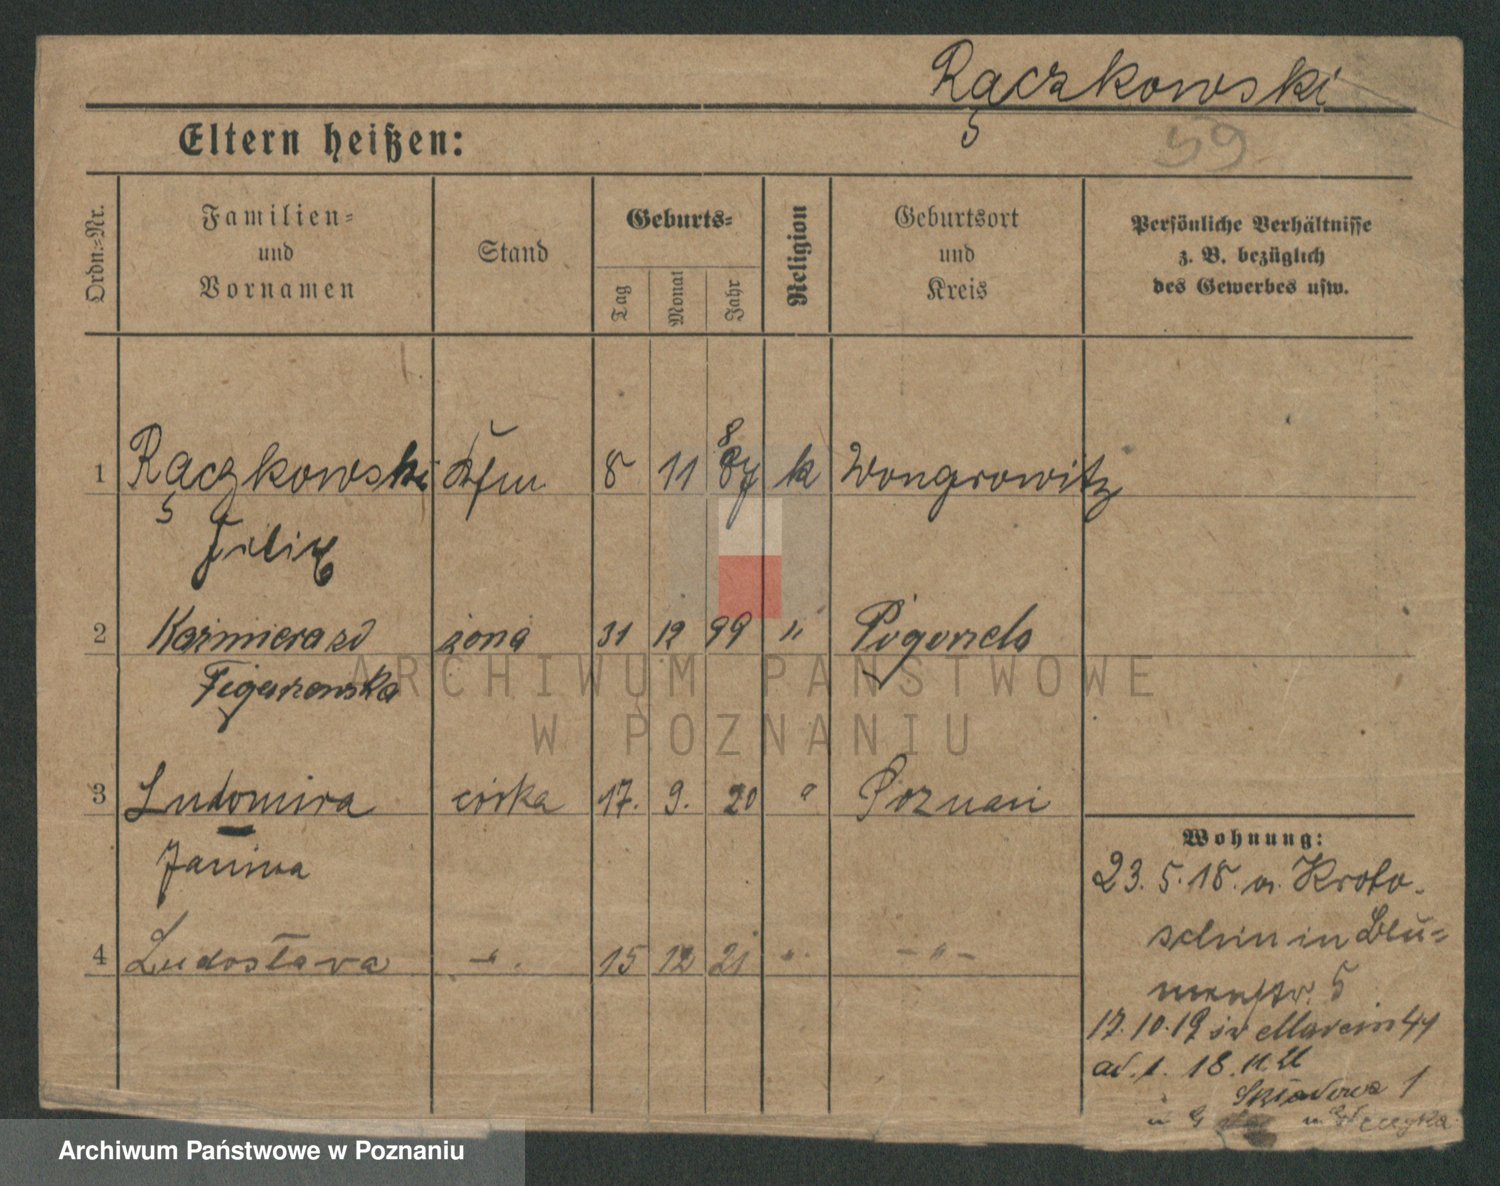 Rączkowski
59
Eltern heißen:
Ordn=Nr.
Familien=
und
Vornamen
Stand
Geburts=
Tag
Monat
Jahr
Religion
Geburtsort
und
Kreis
Persönliche Verhältnisse
z. B. bezüglich
des Gewerbes usw.
1 Rączkowski 8 11 87 k Wongrowitz
Felix
2 Kazimiera żona 31 12 99 " Pogorzela
3 Ludomira córka 17. 9. 20 " Poznań
Janina
4 Ludosława -"- 15 12 21 " -"-
Wohnung:
23. 5. 18. a. Kroto-
schin in Blu=
menstr. 5
17. 10. 19 św Marcin 44
18. 11. 21
Składowa 1
ARCHIWUM PAŃSTWOWE
W POZNANIU
Archiwum Państwowe w Poznaniu